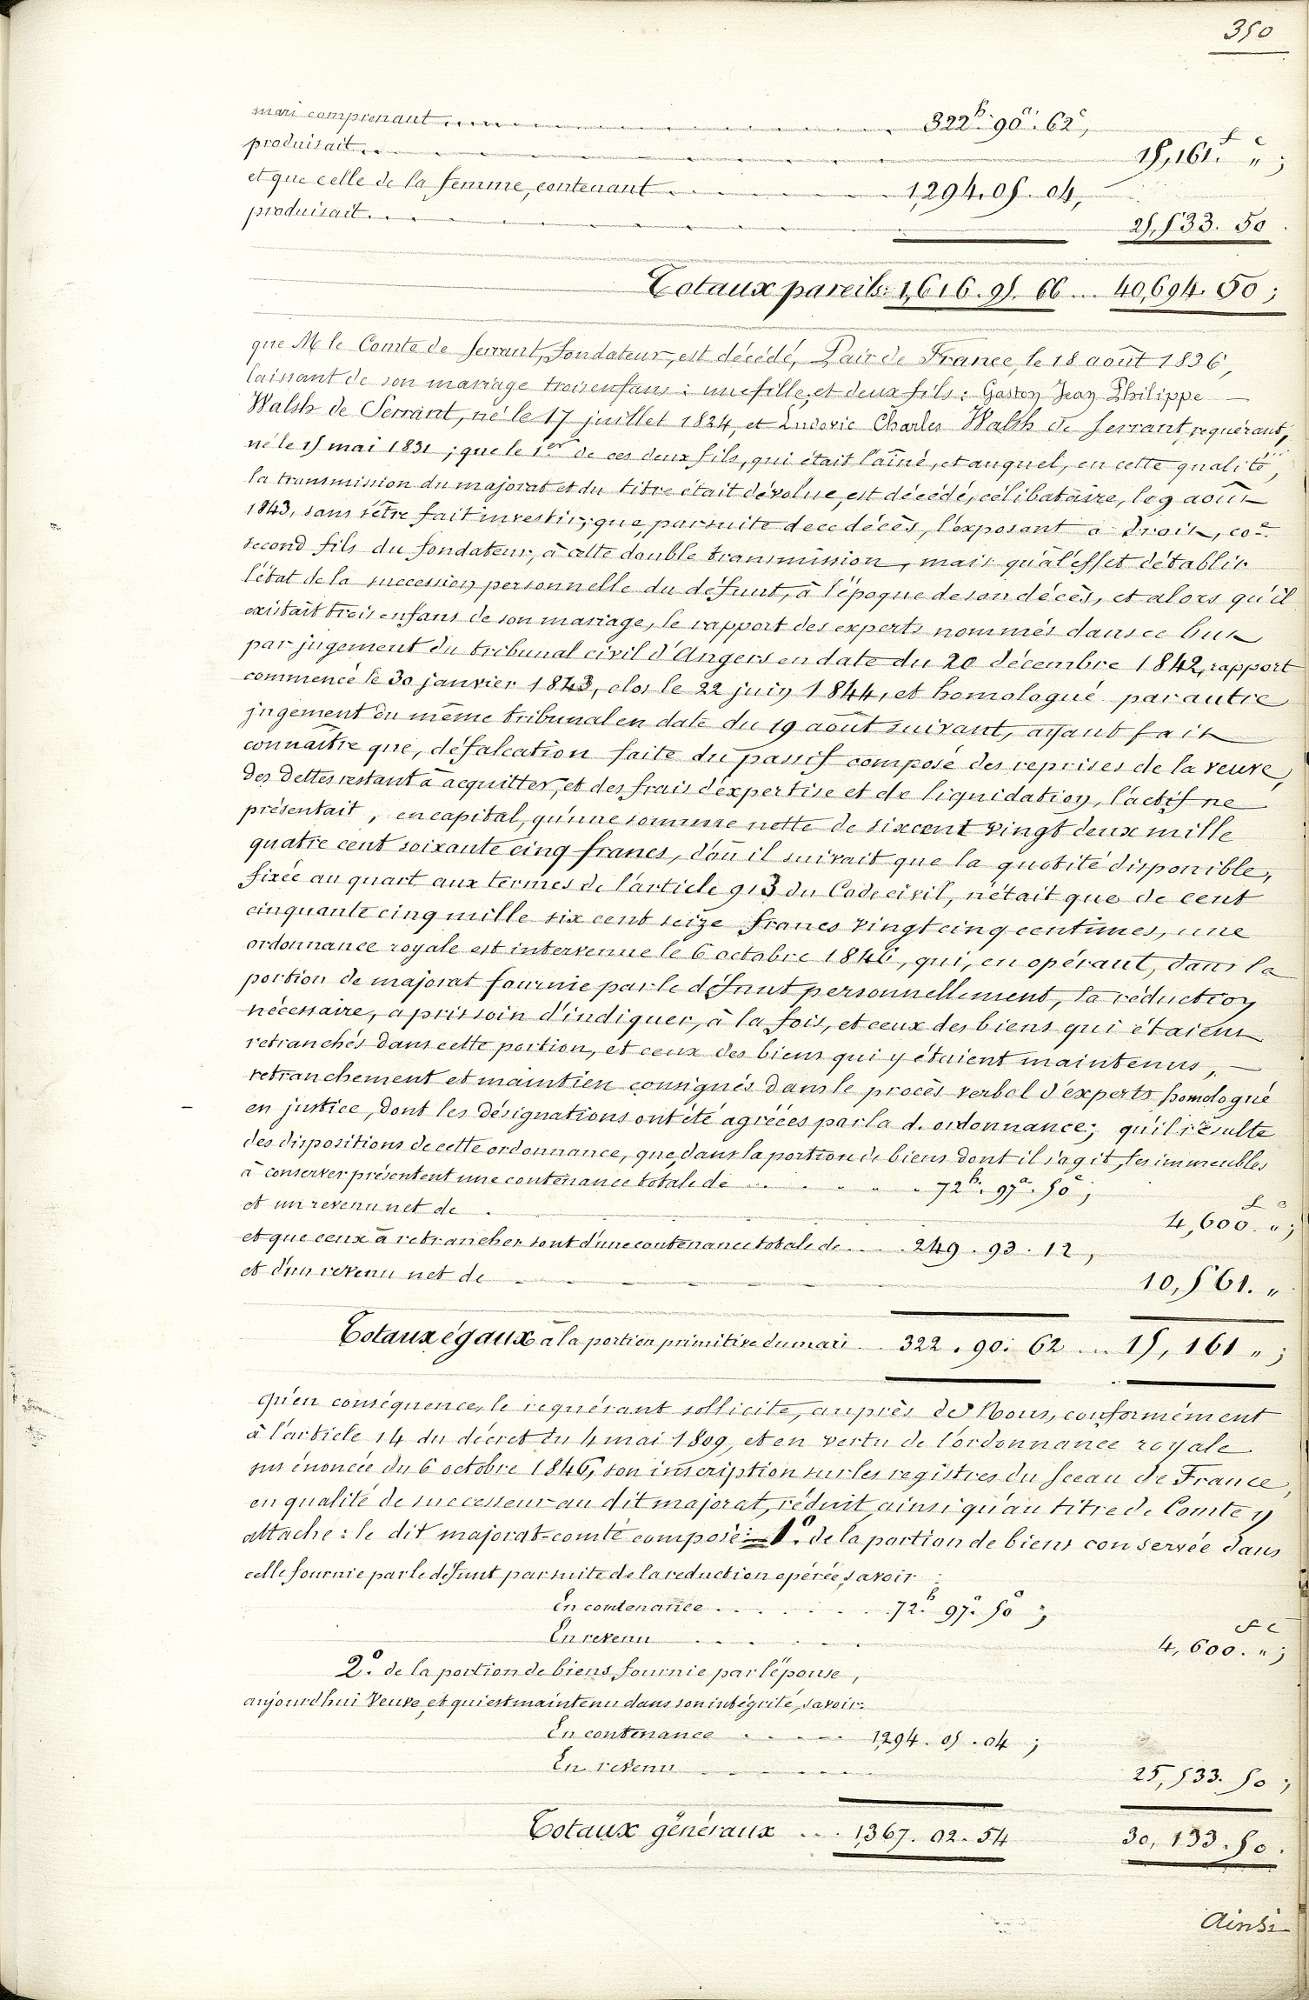 350
mari comprenant . . . . . . . . . . . . 322h. 90a. 62c,
produisait . . . . . . . . . . . . 15,161f. "c;
et que celle de la femme, contenant . . . . . . . . 1,294. 05. 04,
produisait . . . . . . . . . . . . 25,533. 50.
Totaux pareils: 1,616. 95. 66 ... 40,694. 50;
que M le Comte de Serrant, fondateur, est décédé, Pair de France, le 18 août 1836,
laissant de son mariage trois enfans : une fille, et deux fils : Gaston Jean Philippe
Walsh de Serrant, né le 17 juillet 1824, et Ludovic Charles Walsh de Serrant, requérant,
né le 15 mai 1831 ; que le 1er de ces deux fils, qui était l'aîné, et auquel, en cette qualité,
la transmission du majorat et du titre était dévolue, est décédé, célibataire, le 9 août
1843, sans s'être fait investir; que, par suite de ce décès, l'exposant a droit, coe.
second fils du fondateur, à cette double transmission, mais qu'à l'effet d'établir
l'état de la succession personnelle du défunt, à l'époque de son décès, et alors qu'il
existait trois enfans de son mariage, le rapport des experts nommés dans ce but
par jugement du tribunal civil d'Angers en date du 20 décembre 1842, rapport
commencé le 30 janvier 1843, clos le 22 juin 1844, et homologué par autre
jugement du même tribunal en date du 19 août suivant, ayant fait
connaître que, défalcation faite du passif composé des reprises de la veuve,
des dettes restant à acquitter, et des frais d'expertise et de liquidation, l'actif ne
présentait, en capital, qu'une somme nette de six cent vingt deux mille
quatre cent soixante cinq francs, d'où il suivait que la quotité disponible,
fixée au quart aux termes de l'article 913 du Code civil, n'était que de cent
cinquante cinq mille six cent seize francs vingt cinq centimes, une
ordonnance royale est intervenue le 6 octobre 1846, qui, en opérant, dans la
portion de majorat fournie par le défunt personnellement, la réduction
nécessaire, a pris soin d'indiquer, à la fois, et ceux des biens qui étaient
retranchés dans cette portion, et ceux des biens qui y étaient maintenus,
retranchement et maintien consignés dans le procès verbal d'experts homologué
en justice, dont les désignations ont été agréées par la d. ordonnance; qu'il résulte
des dispositions de cette ordonnance, que, dans la portion de biens dont il s'agit, les immeubles
à conserver présentent une contenance totale de . . . . . 72h. 97a. 50c;
et un revenu net de . . . . . . . . 4,600f. "c;
et que ceux à retrancher sont d'une contenance totale de . . . . 249. 93. 12,
et d'un revenu net de . . . . . . . . 10,561. "
Totaux égaux à la portion primitive du mari . . 322. 90. 62 ... 15,161 ";
qu'en conséquence, le requérant sollicite, auprès de Nous, conformément
à l'article 14 du décret du 4 mai 1809, et en vertu de l'ordonnance royale
sus énoncée du 6 octobre 1846, son inscription sur les registres du Sceau de France,
en qualité de successeur au dit majorat, réduit, ainsi qu'au titre de Comte y
attaché : le dit majorat-comté composé : = 1.° de la portion de biens conservée dans
celle fournie par le défunt par suite de la réduction opérée, savoir :
En contenance . . . . . . 72h. 97a. 50c ;
En revenu . . . . . . 4,600f. "c;
2.° de la portion de biens fournie par l'épouse,
aujourd'hui veuve, et qui est maintenu dans son intégrité, savoir:
En contenance . . . . . 1,294. 05. 04 ;
En revenu . . . . . . 25,533. 50;
Totaux généraux ... 1,367. 02. 54 30,133. 50.
Ainsi